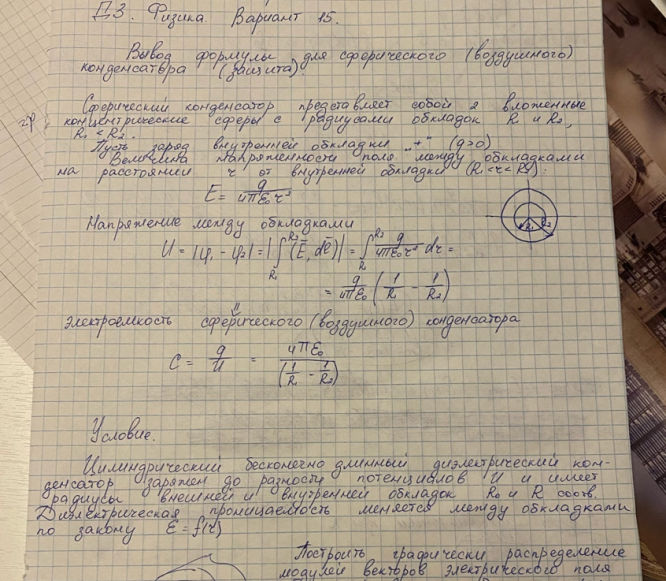 ДЗ. Физика Вариант 15.
Вывод формулы для сферического (воздушного)
конденсатора (защита).
Сферический конденсатор представляет собой 2 вложенные
концентрические сферы с радиусами обкладок R₁ и R₂,
R₁ < R₂.
Пусть заряд внутренней обкладки „+" (q>0)
Величина напряженности поля между обкладками
на расстоянии r от внутренней обкладки (R₁<r<R₂):
E = q/4πε₀r²
R₁ R₂
Напряжение между обкладками
U = |φ₁ - φ₂| = |∫_{R₁}^{R₂} (Ē, dē)| = ∫_{R₁}^{R₂} q/4πε₀r² dr =
= q/4πε₀ (1/R₁ - 1/R₂)
⇓
Электроемкость сферического (воздушного) конденсатора
C = q/U = 4πε₀/(1/R₁ - 1/R₂)
Условие.
Цилиндрический бесконечно длинный диэлектрический кон-
денсатор заряжен до разности потенциалов U и имеет
радиусы внешней и внутренней обкладок R₀ и R соотв.
Диэлектрическая проницаемость меняется между обкладками
по закону ε = f(r)
Построить графически распределение
модулей векторов электрического поля